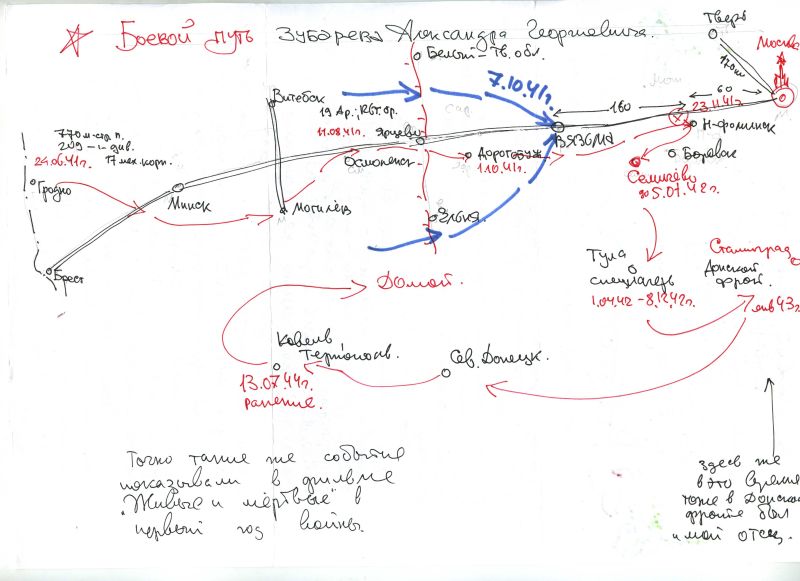 Боевой путь Зубарева Александра Георгиевича.
Тверь
Москва
Белый – Тв. обл.
170 км
7.10.41г.
Витебск
19 Ар.;
11.08.41г.
Ярцево
160
60
23.11.41г.
Н-Фоминск
Вязьма
770
209
17 мех. корп.
24.06.41г.
Гродно
Минск
Могилев
Смоленск
Дорогобуж
1.10.41г.
Боровск
Семичёво
5.01.42г.
Ельня
Брест
Домой.
Тула
спецлагерь
1.04.42 – 8.12.42г.
Сталинград
Донской
фрон.
янв 43г.
Ковель
Сев. Донецк.
13.07.44г.
ранение.
Точно такие же события
показывали в фильме
"Живые и мёртвые" в
первый год войны.
здесь же
в это время
тоже в Донском
фронте был
и мой отец.